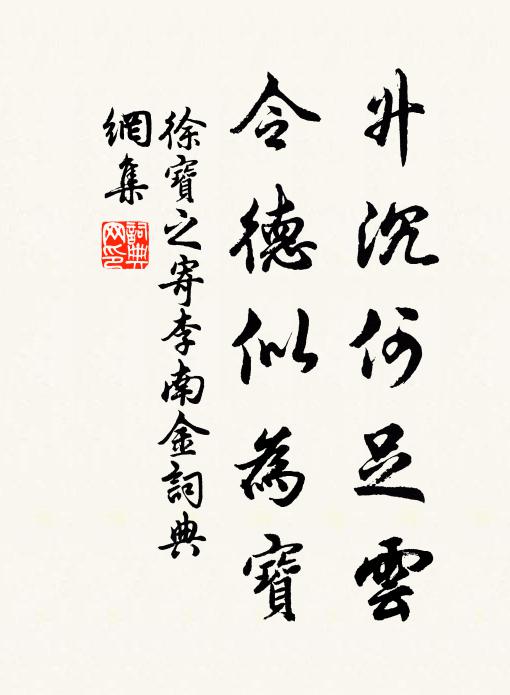 升沉何足雲
令德似為寶
徐寶之寄李南金詞典
網集
詞典網印